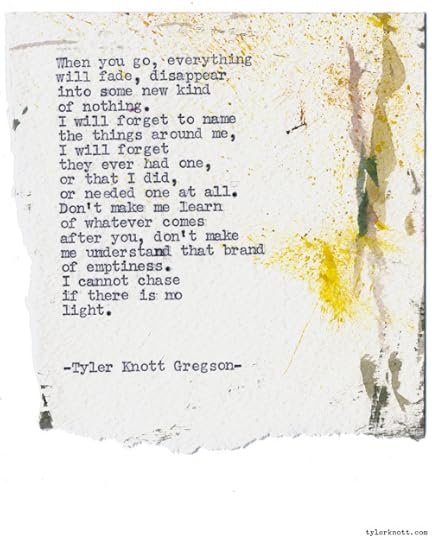 When you go, everything
will fade, disappear
into some new kind
of nothing.
I will forget to name
the things around me,
I will forget
they ever had one,
or that I did,
or needed one at all.
Don't make me learn
of whatever comes
after you, don't make
me understand that brand
of emptiness.
I cannot chase
if there is no
light.
-Tyler Knott Gregson-
tylerknott.com